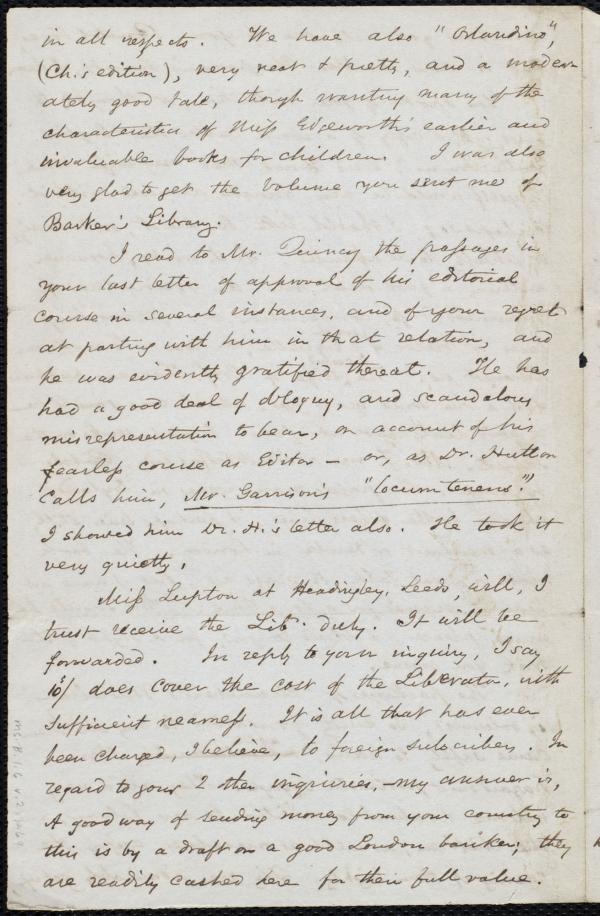 in all respects. We have also "Orlandino",
(Ch.'s edition), very neat & pretty, and a moder-
ately good tale, though wanting many of the
characteristics of Miss Edgeworth's earlier and
invaluable books for children. I was also
very glad to get the volume you sent me of
Barker's Library.
I read to Mr. Quincy the passages in
your last letter of approval of his editorial
course in several instances, and of your regret
at parting with him in that relation, and
he was evidently gratified thereat. He has
had a good deal of obloquy, and scandalous
misrepresentation to bear, on account of his
fearless course as Editor - or, as Dr. Hutton
calls him, Mr. Garrison's "locum tenens".
I showed him Dr. H.'s letter also. He took it
very quietly.
Miss Lupton at Headingley, Leeds, will, I
trust receive the Lib. duly. It will be
forwarded. In reply to your inquiry, I say
10/ does cover the cost of the Liberator, with
sufficient nearness. It is all that has ever
been charged, I believe, to foreign subscribers. In
regard to your 2 other inquiries, - my answer is,
A good way of sending money from your country to
this is by a draft on a good London banker; they
are readily cashed here for their full value.